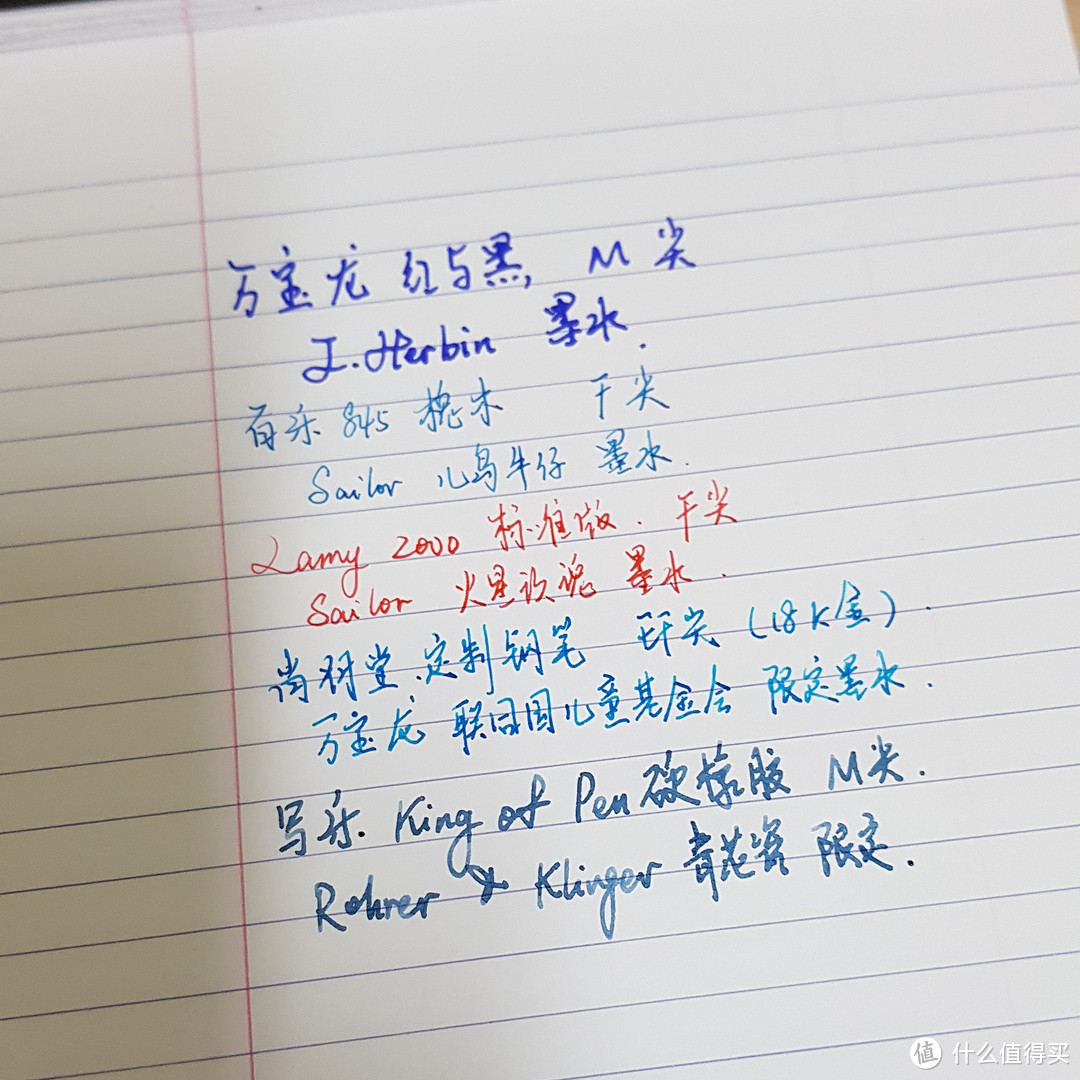 万宝龙 红与黑, M 尖
J.Herbin 墨水.
百乐 845 槐木 F尖
Sailor 儿岛牛仔 墨水.
Lamy 2000 标准版. F尖
Sailor 火星 墨水.
尚羽堂.定制钢笔 EF尖 (18K金).
万宝龙 联合国儿童基金会 限定墨水.
写乐. King of Pen 硬橡胶 M尖.
Rohrer & Klinger 青花瓷 限定.
值 什么值得买